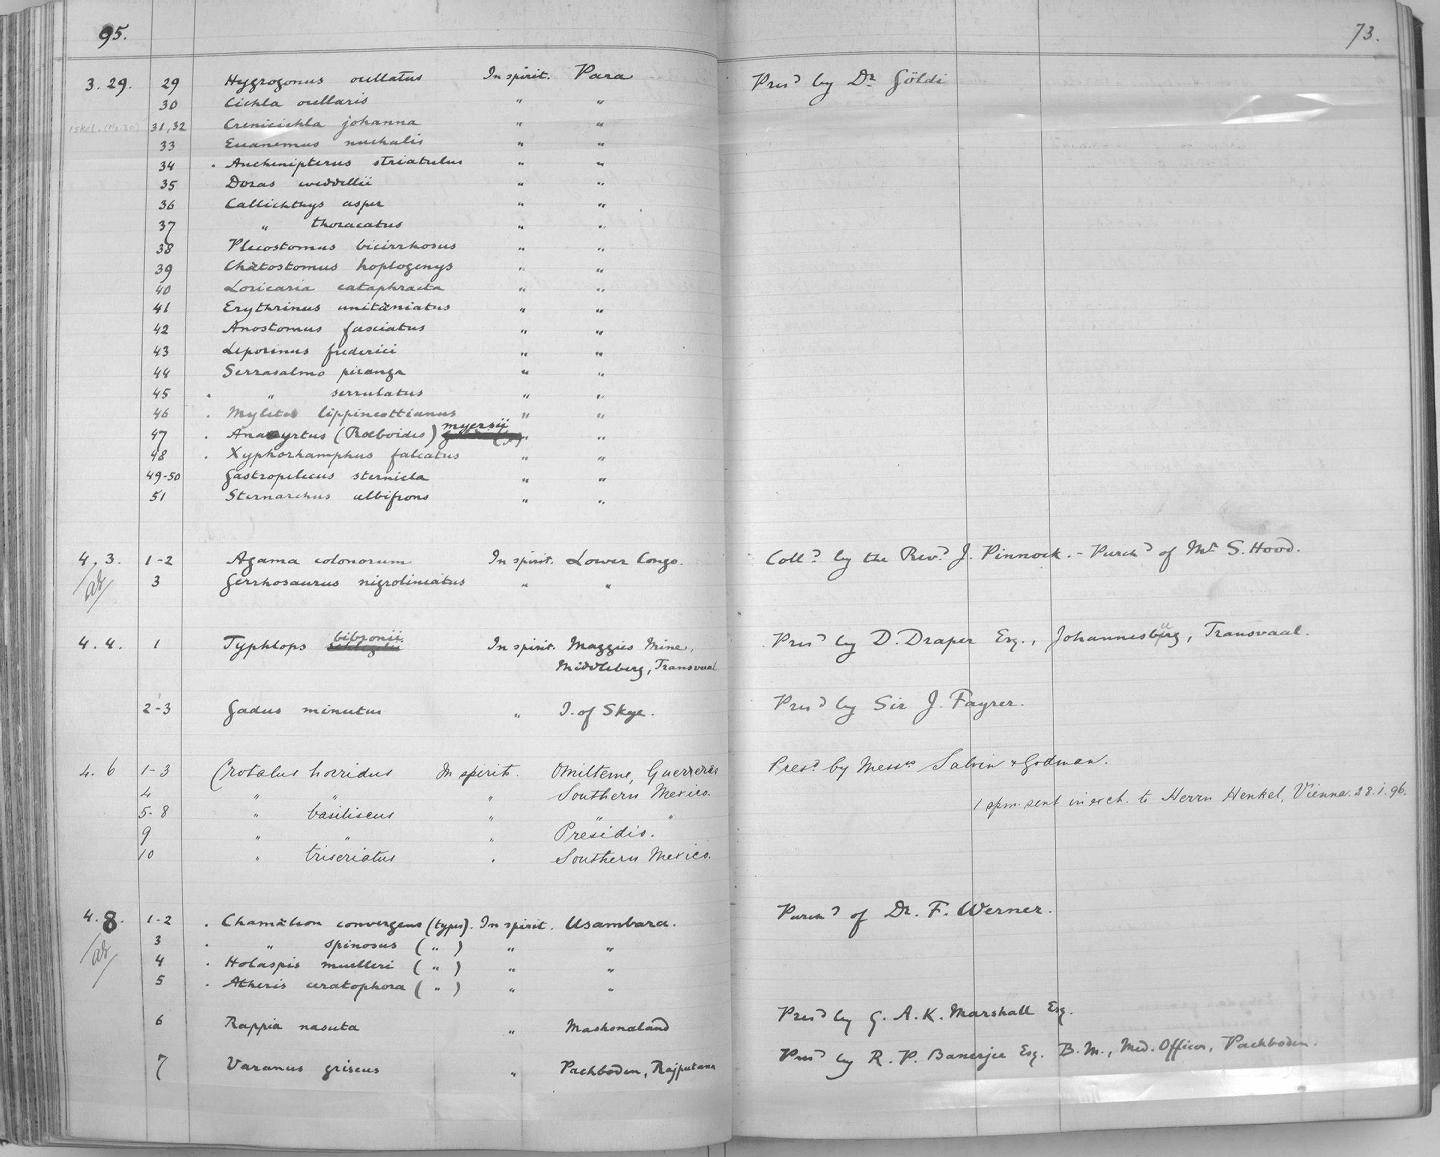 95. 73.
3. 29. 29 Hygrogonus ocellatus In spirit. Para Pres^d by Dr. Göldi
30 Cichla ocellaris " "
31,32 Crenicichla johanna " "
33 Euanemus nuchalis " "
34 . Auchenipterus striatulus " "
35 Doras weddellii " "
36 Callichthys asper " "
37 " thoracatus " "
38 Plecostomus bicirrhosus " "
39 Chætostomus hoplogenys " "
40 Loricaria cataphracta " "
41 Erythrinus unitæniatus " "
42 Anostomus fasciatus " "
43 Leporinus frederici " "
44 Serrasalmo piranga " "
45 . " serrulatus " "
46 . Myletes lippincottianus " "
47 . Anacyrtus (Rœboides) myersii " "
48 . Xyphorhamphus falcatus " "
49-50 Gastropelecus sternicla " "
51 Sternarchus albifrons " "
4. 3. 1-2 Agama colonorum In spirit. Lower Congo. Coll^d by the Rev^d J. Pinnock. - Purch^d of Mr S. Hood.
3 Gerrhosaurus nigrolineatus " "
4. 4. 1 Typhlops bibronii In spirit. Maggies Mine, Pres^d by D. Draper Esq., Johannesburg, Transvaal.
Middleberg, Transvaal
2-3 Gadus minutus " I. of Skye. Pres^d by Sir J. Fayrer.
4. 6 1-3 Crotalus horridus In spirit. Omilteme, Guerrero Pres^d by Mess^rs Salvin & Godman.
4 " " " Southern Mexico.
1 spm sent in exch. to Herrn Henkel, Vienna 28.1.96.
5-8 " basiliscus " " "
9 " " " Presidio.
10 " triseriatus " Southern Mexico.
4. 8. 1-2 . Chamæleon convergens (types). In spirit. Usambara. Purch^d of Dr. F. Werner.
3 . " spinosus ( " ) " "
4 . Holaspis muelleri ( " ) " "
5 . Atheris ceratophora ( " ) " "
6 Rappia nasuta " Mashonaland Pres^d by G. A. K. Marshall Esq.
7 Varanus griseus " Pachbodra, Rajputana Pres^d by R. P. Banerjee Esq. B.M., Med. Officer, Pachbodra.